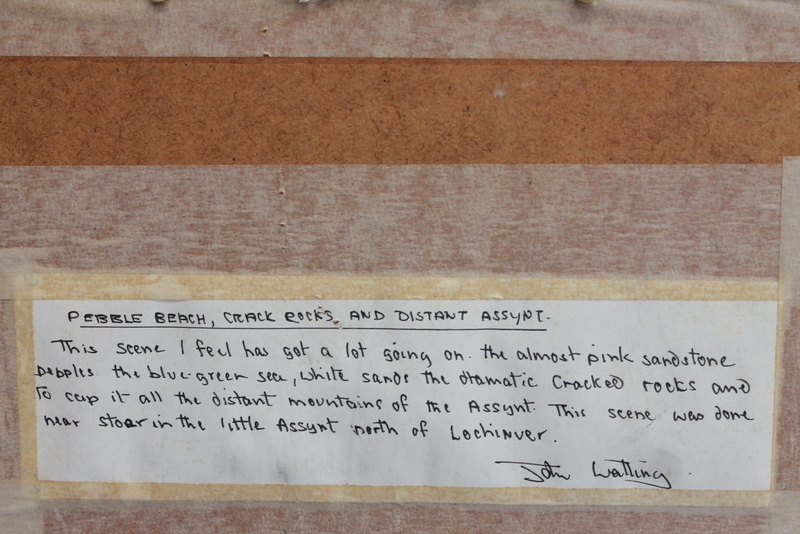 PEBBLE BEACH, CRACK ROCKS, AND DISTANT ASSYNT.
This scene I feel has got a lot going on. the almost pink sandstone
pebbles the blue-green sea, white sands the dramatic Cracked rocks and
To cap it all the distant mountains of the Assynt. This scene was done
near stoer in the little Assynt north of Lochinver.
John Watling.